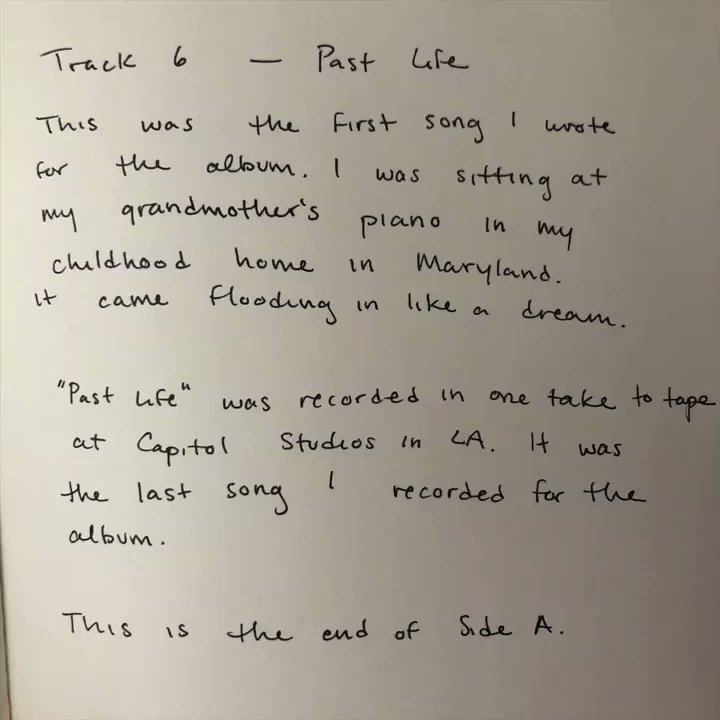 Track 6 — Past Life
This was the first song I wrote
for the album. I was sitting at
my grandmother's piano in my
childhood home in Maryland.
It came flooding in like a dream.
"Past Life" was recorded in one take to tape
at Capitol Studios in LA. It was
the last song I recorded for the
album.
This is the end of Side A.